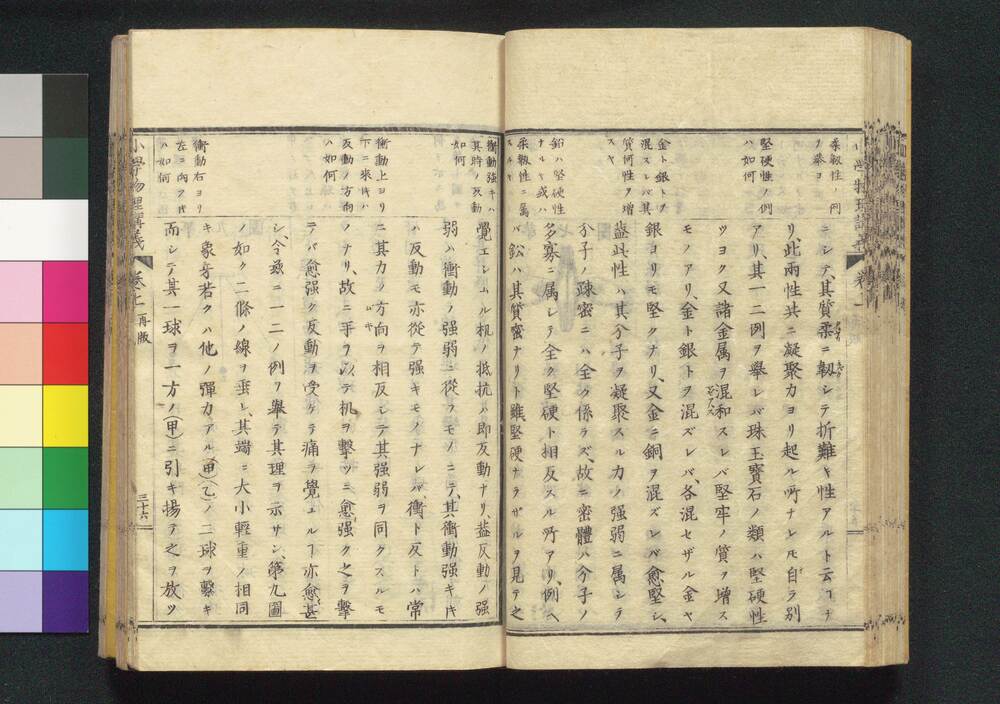 柔靱性ノ例
ヲ擧ヨ
堅硬性ノ例
ハ如何
金ト銀トヲ
混スレバ其
質何性ヲ増
スヤ
鉛ハ堅硬性
ナルヤ或ハ
柔靱性ニ属
スルヤ
ニシテ、其質柔ニ靱シテ折難キ性アルト云コナ
リ、此兩性共ニ凝聚力ヨリ起ル所ナレモ自ラ別
アリ、其一二例ヲ舉レバ珠玉寶石ノ類ハ堅硬性
ツヨク又諸金属ヲ混和スレバ堅牢ノ質ヲ増ス
モノアリ、金ト銀トヲ混ズレバ、各混セザル金ヤ
銀ヨリモ堅クナリ、又金ニ銅ヲ混ズレバ愈堅シ、
蓋此性ハ其分子ヲ凝聚スル力ノ强弱ニ属シテ
分子ノ疎密ニハ全ク係ラズ、故ニ密體ハ分子ノ
多寡ニ属シテ全ク堅硬ト相反スル所アリ、例ヘ
バ鉛ハ其質密ナリト雖堅硬ナラザルヲ見テ之
衝動强キハ
其時ノ反動
如何
衝動上ヨリ
下ニ來レハ
反動ノ方向
ハ如何
衝動右ヨリ
左ニ向フキ
ハ如何
覺エシムル机ノ抵抗ハ即反動ナリ、蓋反動ノ强
弱ハ衝動ノ强弱ニ從フモノニテ、其衝動强キキ
ハ反動モ亦從テ强キモノナレバ、衝ト反トハ常
ニ其力ノ方向ヲ相反シテ其强弱ヲ同クスルモ
ノナリ、故ニ手ヲ以テ机ヲ擊ツニ愈强ク之ヲ擊
テバ愈强ク反動ヲ受ケテ痛ヲ覺ユルヿ亦愈甚
シ、今茲ニ一二ノ例ヲ擧テ其理ヲ示サン、第九圖
ノ如ク二條ノ線ヲ垂レ、其端ニ大小輕重ノ相同
キ象牙若クハ他ノ彈力アル(甲)(乙)ノ二球ヲ繫キ
而シテ其一球ヲ一方ノ(甲)ニ引キ揚テ之ヲ放ツ
小學物理講義
卷上 再版
三十六